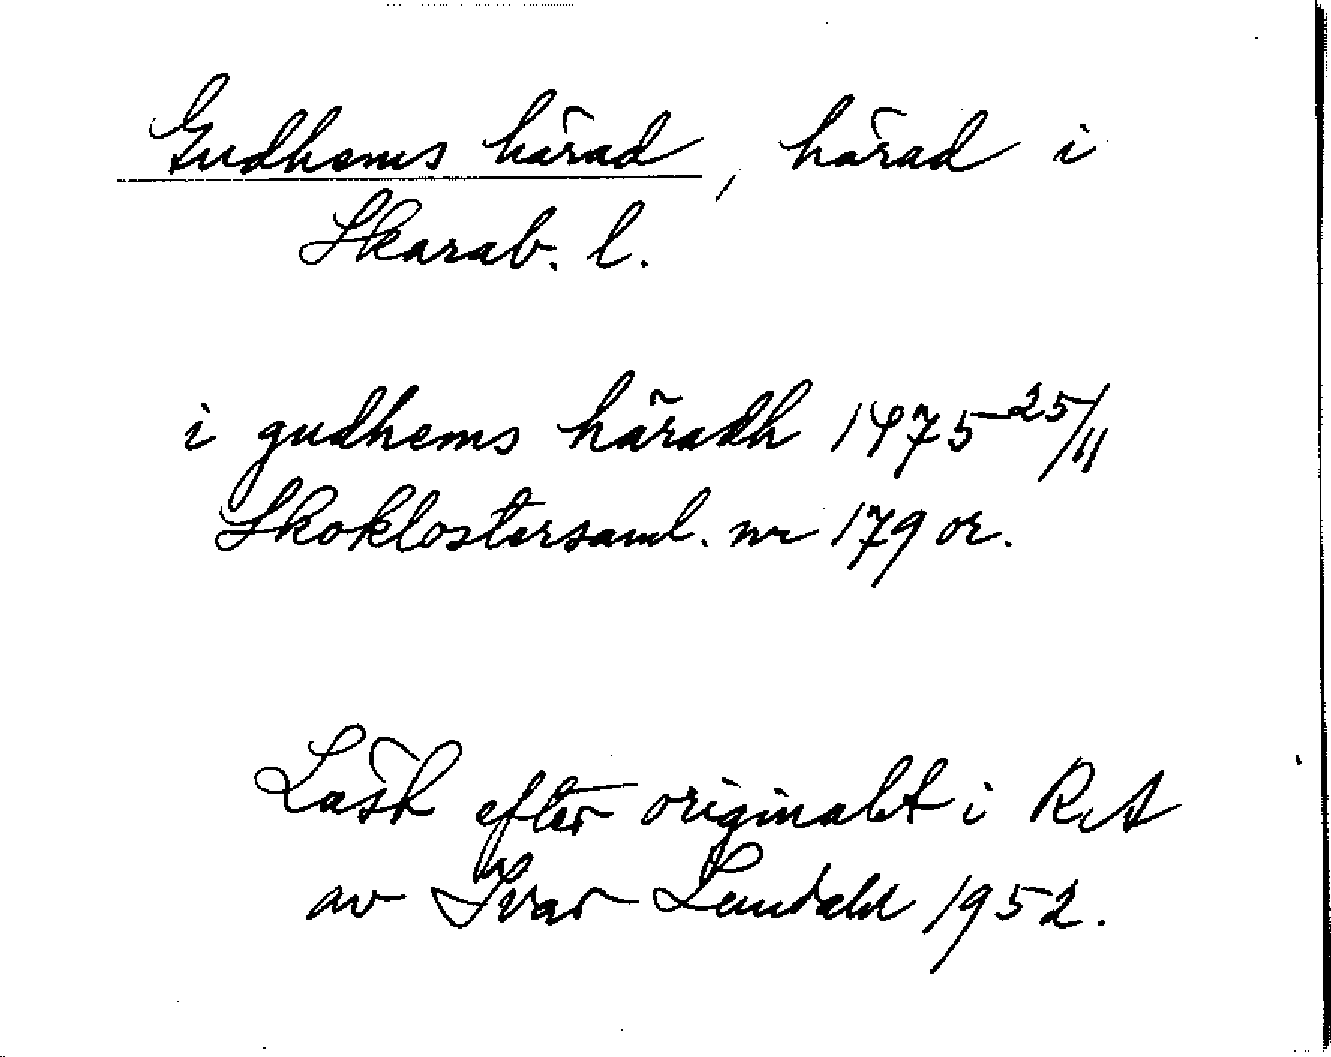 Gudhems härad, härad i
Skarab. l.
i gudhems häradh 1475 25/11
Skoklostersaml. nr 179 or.
Läst efter originalet i RA
av Ivar Lundahl 1952.